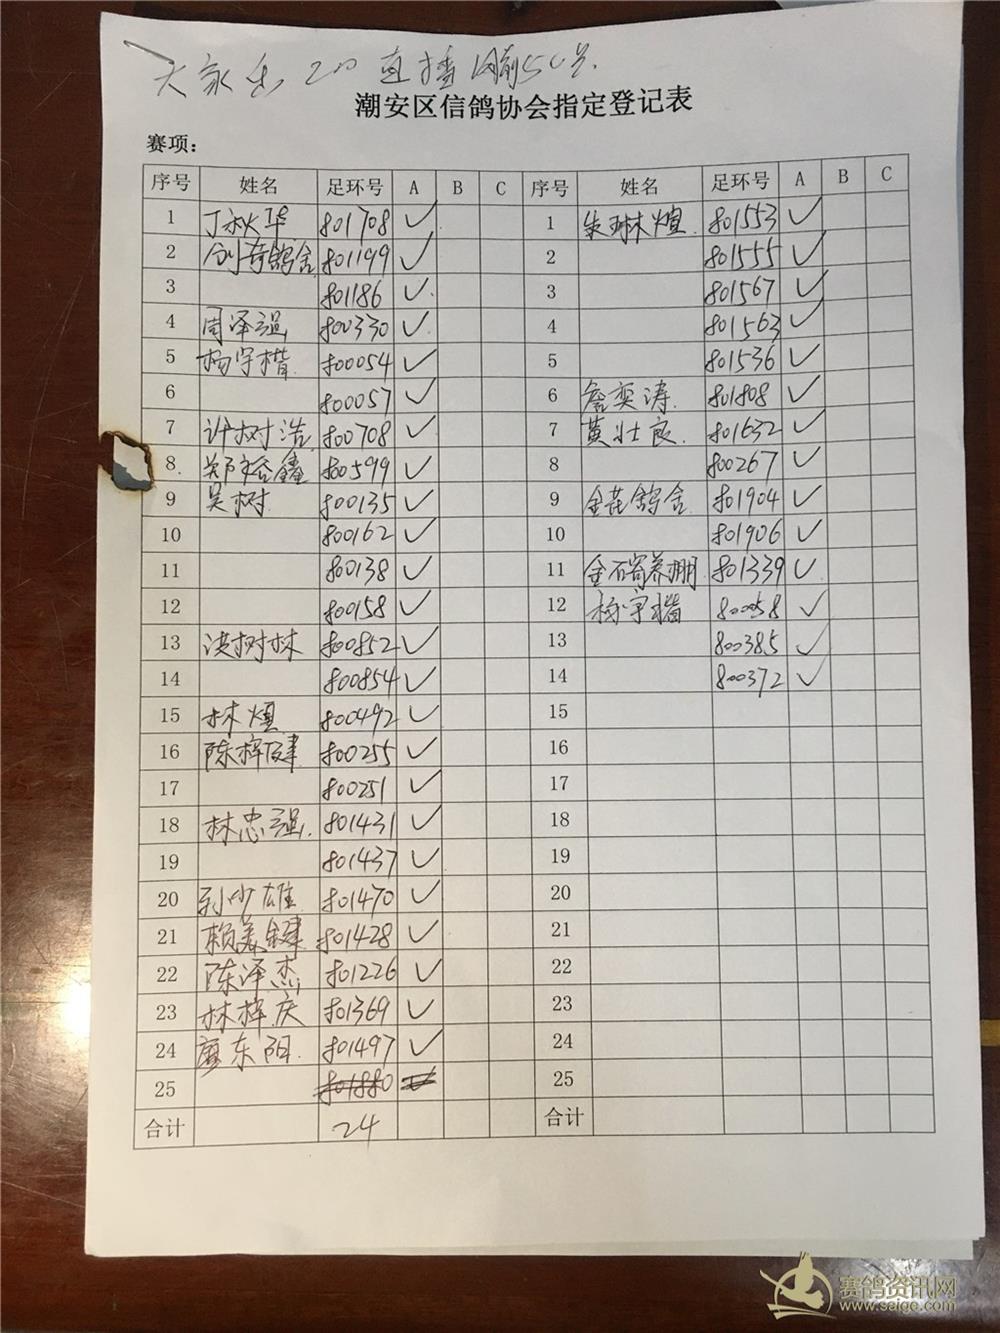 大家出 200 直播网前50名
潮安区信鸽协会指定登记表
赛项：
序号 姓名 足环号 A B C 序号 姓名 足环号 A B C
1 丁秋华 801708 ✓ 1 朱琳煊 801553 ✓
2 创奇鸽舍 801199 ✓ 2 801555 ✓
3 801186 ✓ 3 801567 ✓
4 周泽强 800330 ✓ 4 801563 ✓
5 杨宇楷 800054 ✓ 5 801536 ✓
6 800057 ✓ 6 詹奕涛 801808 ✓
7 许树浩 800708 ✓ 7 黄壮良 801632 ✓
8 郑裕鑫 800599 ✓ 8 800267 ✓
9 吴树 800135 ✓ 9 金芘鸽舍 801904 ✓
10 800162 ✓ 10 801906 ✓
11 800138 ✓ 11 金石寄养棚 801339 ✓
12 800158 ✓ 12 杨宇楷 800058 ✓
13 洪树林 800852 ✓ 13 800385 ✓
14 800854 ✓ 14 800372 ✓
15 林煌 800492 ✓ 15
16 陈梓健 800255 ✓ 16
17 800251 ✓ 17
18 林忠强 801431 ✓ 18
19 801437 ✓ 19
20 孙少雄 801470 ✓ 20
21 赖美键 801428 ✓ 21
22 陈泽杰 801226 ✓ 22
23 林梓庆 801369 ✓ 23
24 廖东阳 801497 ✓ 24
25 801880 ✓ 25
合计 24 合计
赛鸽资讯网
www.saige.com